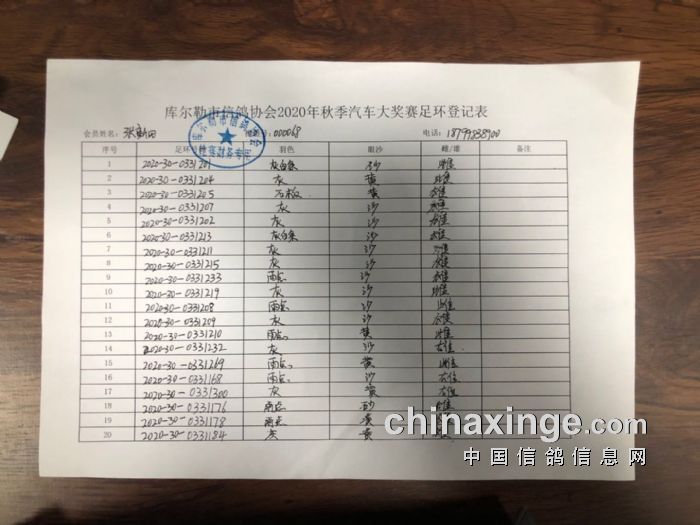 库尔勒市信鸽协会2020年秋季汽车大奖赛足环登记表
会员姓名: 张新田 000068 电话: 18799838900
序号 足环号码 羽色 眼沙 雌/雄 备注
1 2020-30-0331201 灰白条 砂 雌
2 2020-30-0331204 灰 黄 雌
3 2020-30-0331205 石板 黄 雄
4 2020-30-0331207 灰 沙 雄
5 2020-30-0331202 灰 沙 雄
6 2020-30-0331213 灰白条 沙 雄
7 2020-30-0331211 灰 沙
8 2020-30-0331215 灰 沙 雄
9 2020-30-0331233 雨点 沙 雄
10 2020-30-0331219 灰 沙 雌
11 2020-30-0331208 雨点 沙 雌
12 2020-30-0331209 灰 沙 雄
13 2020-30-0331210 雨点 黄 雌
14 2020-30-0331232 灰 沙 雄
15 2020-30-0331269 雨点 黄 雌
16 2020-30-0331168 雨点 沙 雄
17 2020-30-0331300 灰 黄 雄
18 2020-30-0331176 雨点 砂 雌
19 2020-30-0331178 雨点 黄
20 2020-30-0331184 灰 黄
库尔勒市信鸽协会
chinaxinge.com
中国信鸽信息网